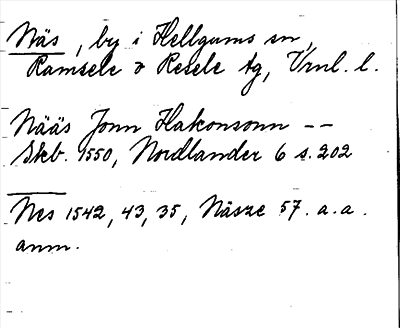 Näs, by i Hellgums sn,
Ramsele & Resele tg, Vrnl. l.
Nääs Jonn Hakonsonn --
Skb. 1550, Nordlander 6 s. 202
Nes 1542, 43, 35, Näsze 57. a.a.
anm.